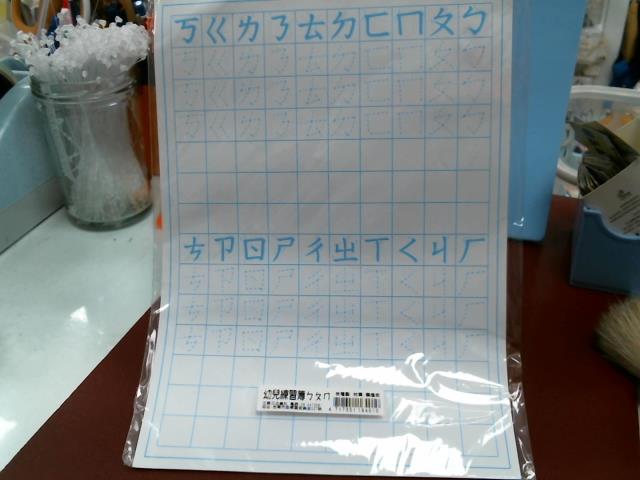 ㄅ ㄆ ㄇ ㄈ ㄉ ㄊ ㄋ ㄌ ㄍ ㄎ
ㄅ ㄆ ㄇ ㄈ ㄉ ㄊ ㄋ ㄌ ㄍ ㄎ
ㄅ ㄆ ㄇ ㄈ ㄉ ㄊ ㄋ ㄌ ㄍ ㄎ
ㄅ ㄆ ㄇ ㄈ ㄉ ㄊ ㄋ ㄌ ㄍ ㄎ
ㄏ ㄐ ㄑ ㄒ ㄓ ㄔ ㄕ ㄖ ㄗ ㄘ
ㄏ ㄐ ㄑ ㄒ ㄓ ㄔ ㄕ ㄖ ㄗ ㄘ
ㄏ ㄐ ㄑ ㄒ ㄓ ㄔ ㄕ ㄖ ㄗ ㄘ
ㄏ ㄐ ㄑ ㄒ ㄓ ㄔ ㄕ ㄖ ㄗ ㄘ
幼兒練習簿ㄅㄆㄇ